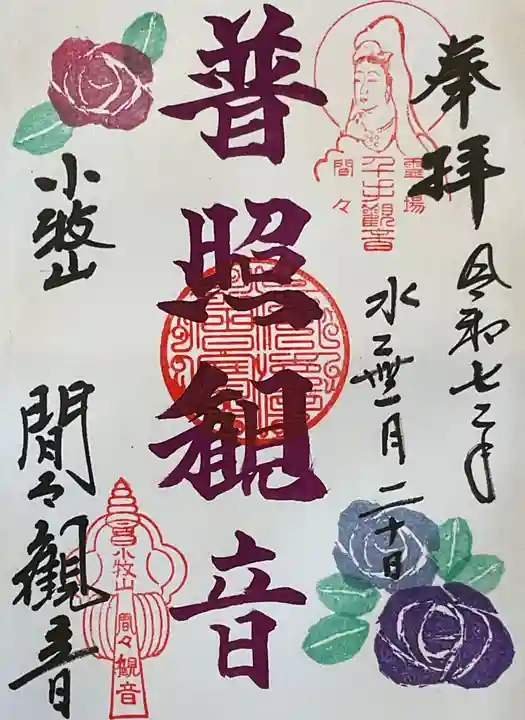 奉拝
令和七年
水無月二十日
霊場
千手観音
間々
普照観音
小牧山
間々観音
小牧山
間々観音